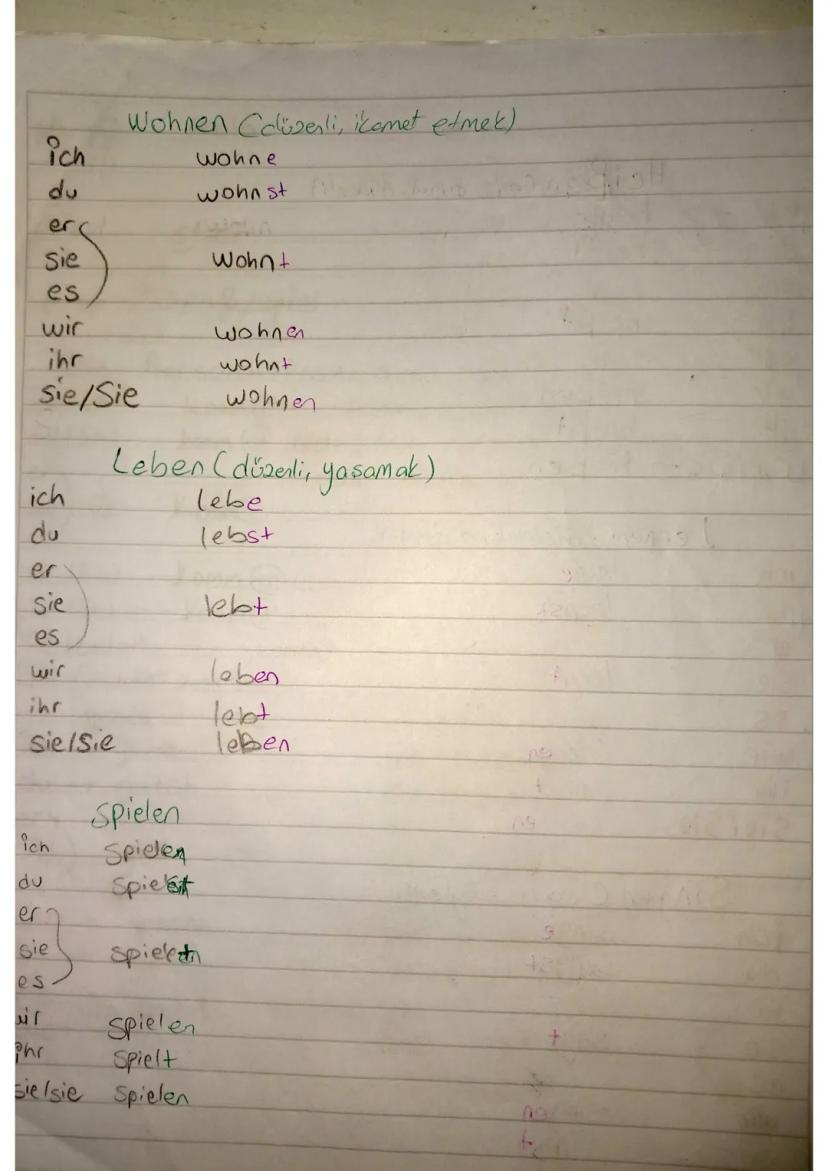 Wohnen (düzenli, ikamet etmek)
ich wohne
du wohnst
er
sie wohnt
es
wir wohnen
ihr wohnt
sie/Sie wohnen
Leben (düzenli, yasamak)
ich lebe
du lebst
er
sie lebt
es
wir leben
ihr lebt
sie/Sie leben
Spielen
ich
du
er
sie
es
wir spielen
ihr spielt
sie/sie spielen